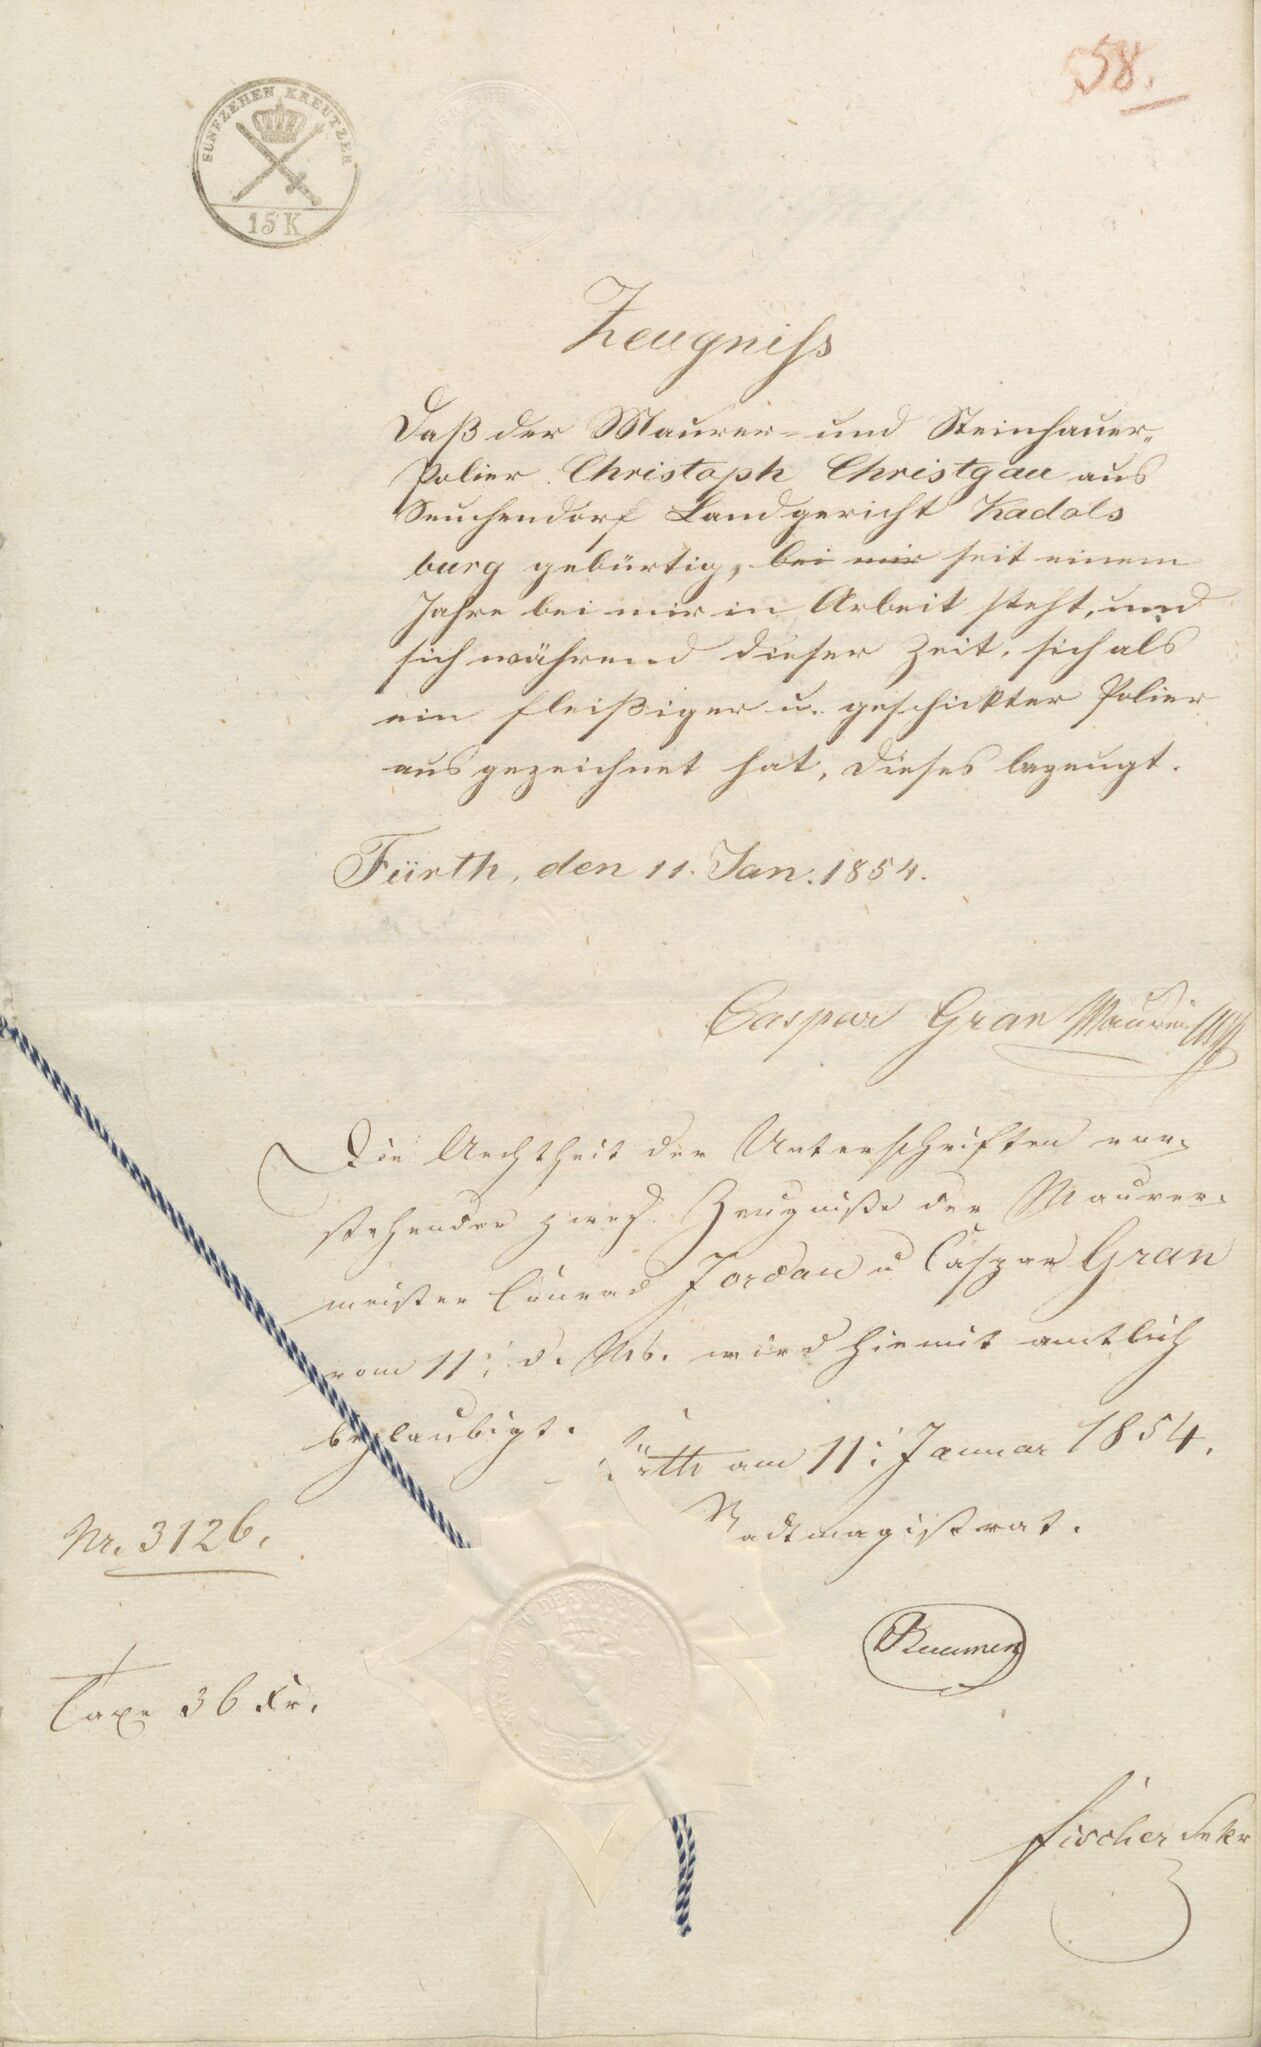 58.
FUNFZEHEN KREUTZER
15 K
Zeugniſs
Daß der Maurer- und Steinhauer-
Polier Christoph Christgau aus
Seuchendorf Landgericht Kadols
burg gebürtig, bei mir seit einem
Jahre bei mir in Arbeit steht, und
sich während dieser Zeit, sich als
ein fleißiger u. geschickter Polier
ausgezeichnet hat, dieses bezeugt.
Fürth, den 11. Jan. 1854.
Caspar Gran
Die Aechtheit der Unterschriften vor-
stehender zwey Zeugniße der Maurer-
meister Conrad Jordan u Caspar Gran
vom 11. d. Mts. wird hiemit amtlich
beglaubigt.
Fürth am 11. Januar 1854.
Stadtmagistrat.
Nr. 3126.
Taxe 36 Kr.
Fischer Sekr